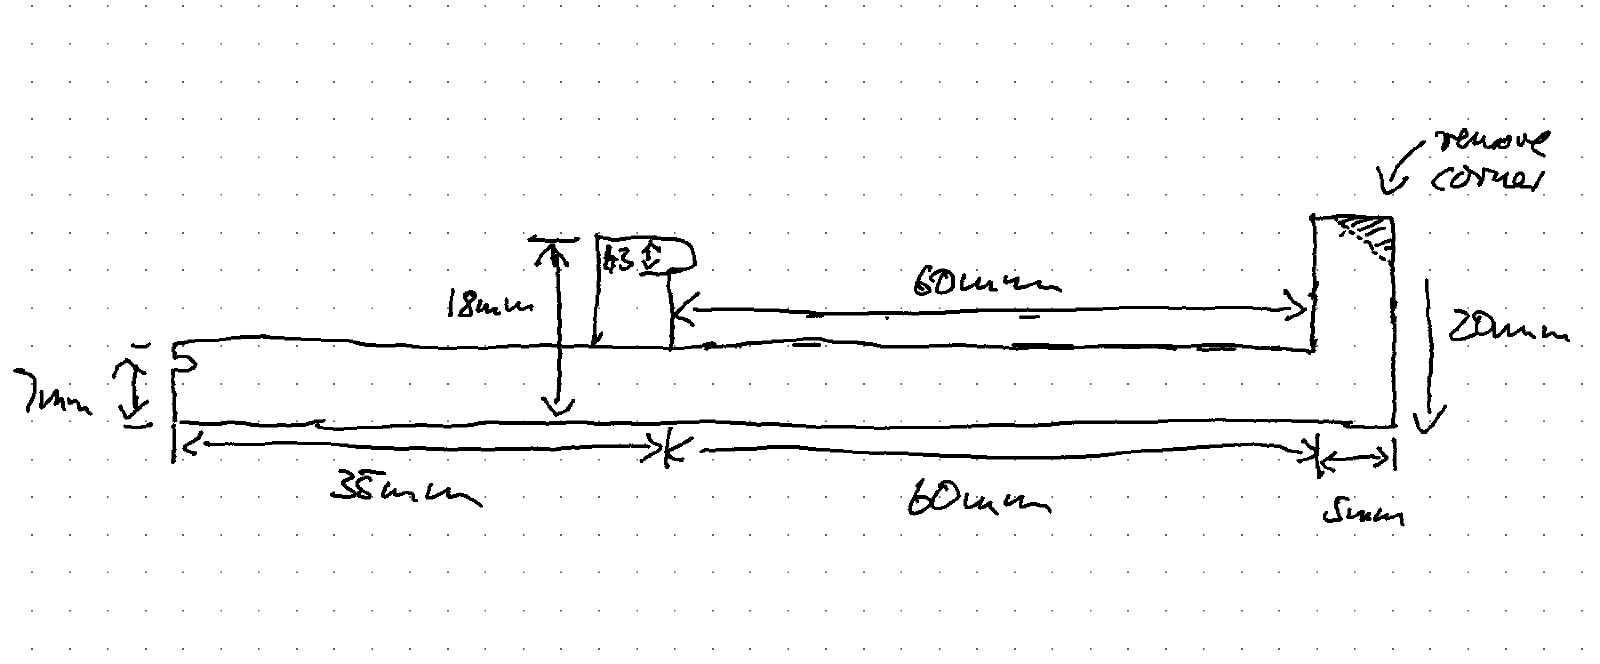 remove
corner
60mm
18mm
3
20mm
7mm
35mm
60mm
5mm